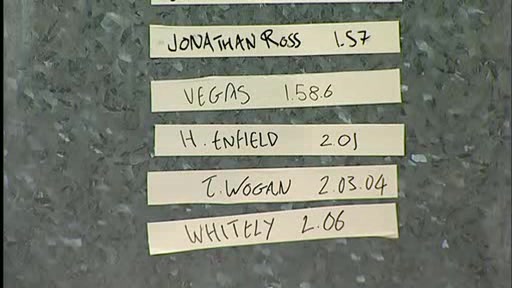 JONATHAN ROSS 1.57
VEGAS 1.58.6
H. ENFIELD 2.01
T. WOGAN 2.03.04
WHITELY 2.06